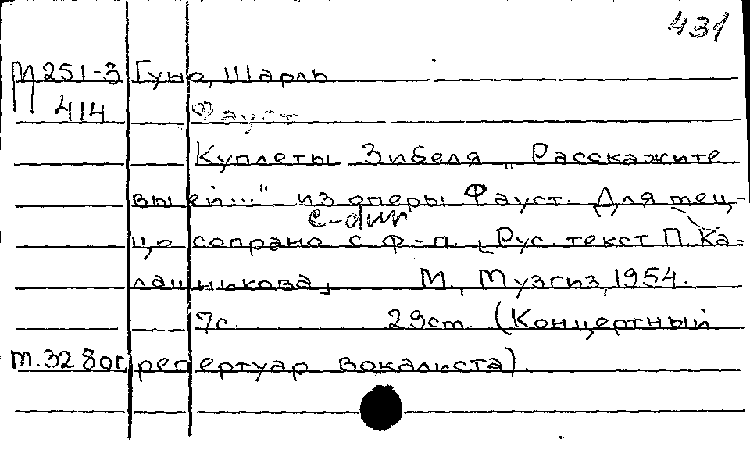 431
М251-3 Гуно, Шарль
414 Фауст
Куплеты Зибеля „Расскажите
вы ей..." из оперы Фауст. Для мец-
c-dur
цо сопрано с ф-п. [Рус. текст П. Ка-
лашникова] М., Музгиз, 1954.
7с. 29см. (Концертный
Т.3280г. репертуар вокалиста)